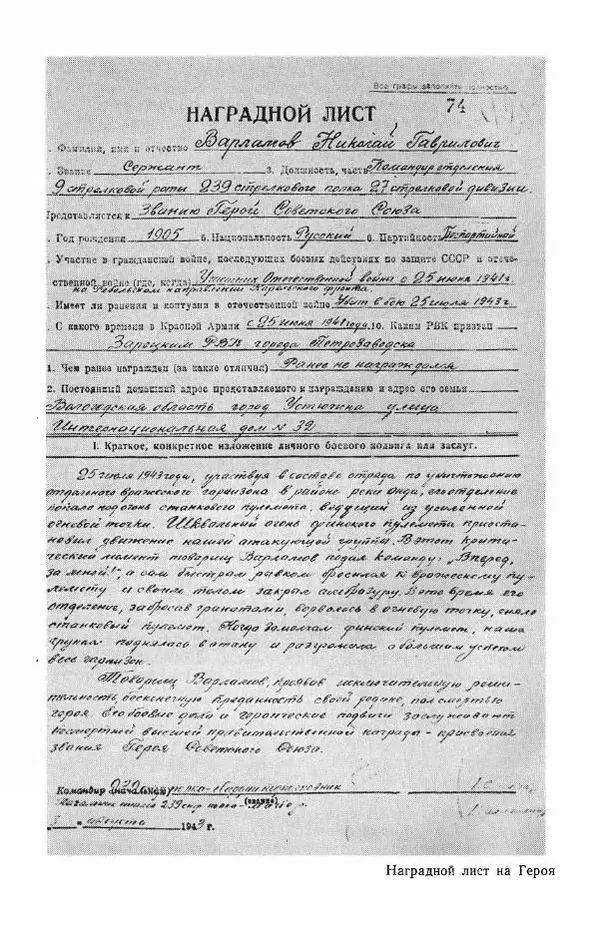 Все графы заполнять полностью
НАГРАДНОЙ ЛИСТ 74
. Фамилия, имя и отчество Варламов Николай Гаврилович
. Звание Сержант 3. Должность, часть Командир отделения
9 стрелковой роты 239 стрелкового полка 27 стрелковой дивизии.
Представляется к Званию Герой Советского Союза
. Год рождения 1905 5. Национальность Русский 6. Партийность Беспартийный
. Участие в гражданской войне, последующих боевых действиях по защите СССР и отече-
ственной войне (где, когда) Участник Отечественной войны с 25 июня 1941 г.
на Ребольском направлении Карельского фронта.
. Имеет ли ранения и контузии в отечественной войне Убит в бою 25 июля 1943 г.
. С какого времени в Красной Армии с 25 июня 1941 года. 10. Каким РВК призван
Зарецким РВК города Петрозаводска
1. Чем ранее награжден (за какие отличия) Ранее не награждался
2. Постоянный домашний адрес представляемого к награждению и адрес его семьи
Вологодская область город Устюжна улица
Интернациональная дом N 32
I. Краткое, конкретное изложение личного боевого подвига или заслуг.
25 июля 1943 года, участвуя в составе отряда по уничтожению
отдельного вражеского гарнизона в районе реки Онда, его отделение
попало под огонь станкового пулемета, ведущий из усиленной
огневой точки. Шквальный огонь финского пулемета приоста-
новил движение нашей атакующей группы. В этот крити-
ческий момент товарищ Варламов подал команду: „Вперед,
за мной!", а сам быстрым рывком бросился к вражескому пу-
лемету и своим телом закрыл амбразуру. В это время его
отделение, забросав гранатами, ворвалось в огневую точку, сняло
станковый пулемет. Когда замолчал финский пулемет, наша
группа поднялась в атаку и разгромила с большим успехом
весь гарнизон.
Товарищ Варламов, проявив исключительную реши-
тельность, бесконечную преданность своей родине, пал смертью
героя. Его боевые дела и героические подвиги заслуживают
посмертной высшей правительственной награды - присвоения
звания Героя Советского Союза.
Командир (начальник) 239 полка - подполковник
Начальник штаба 239 сп (звание) майор
3 августа 1943 г.
Наградной лист на Героя